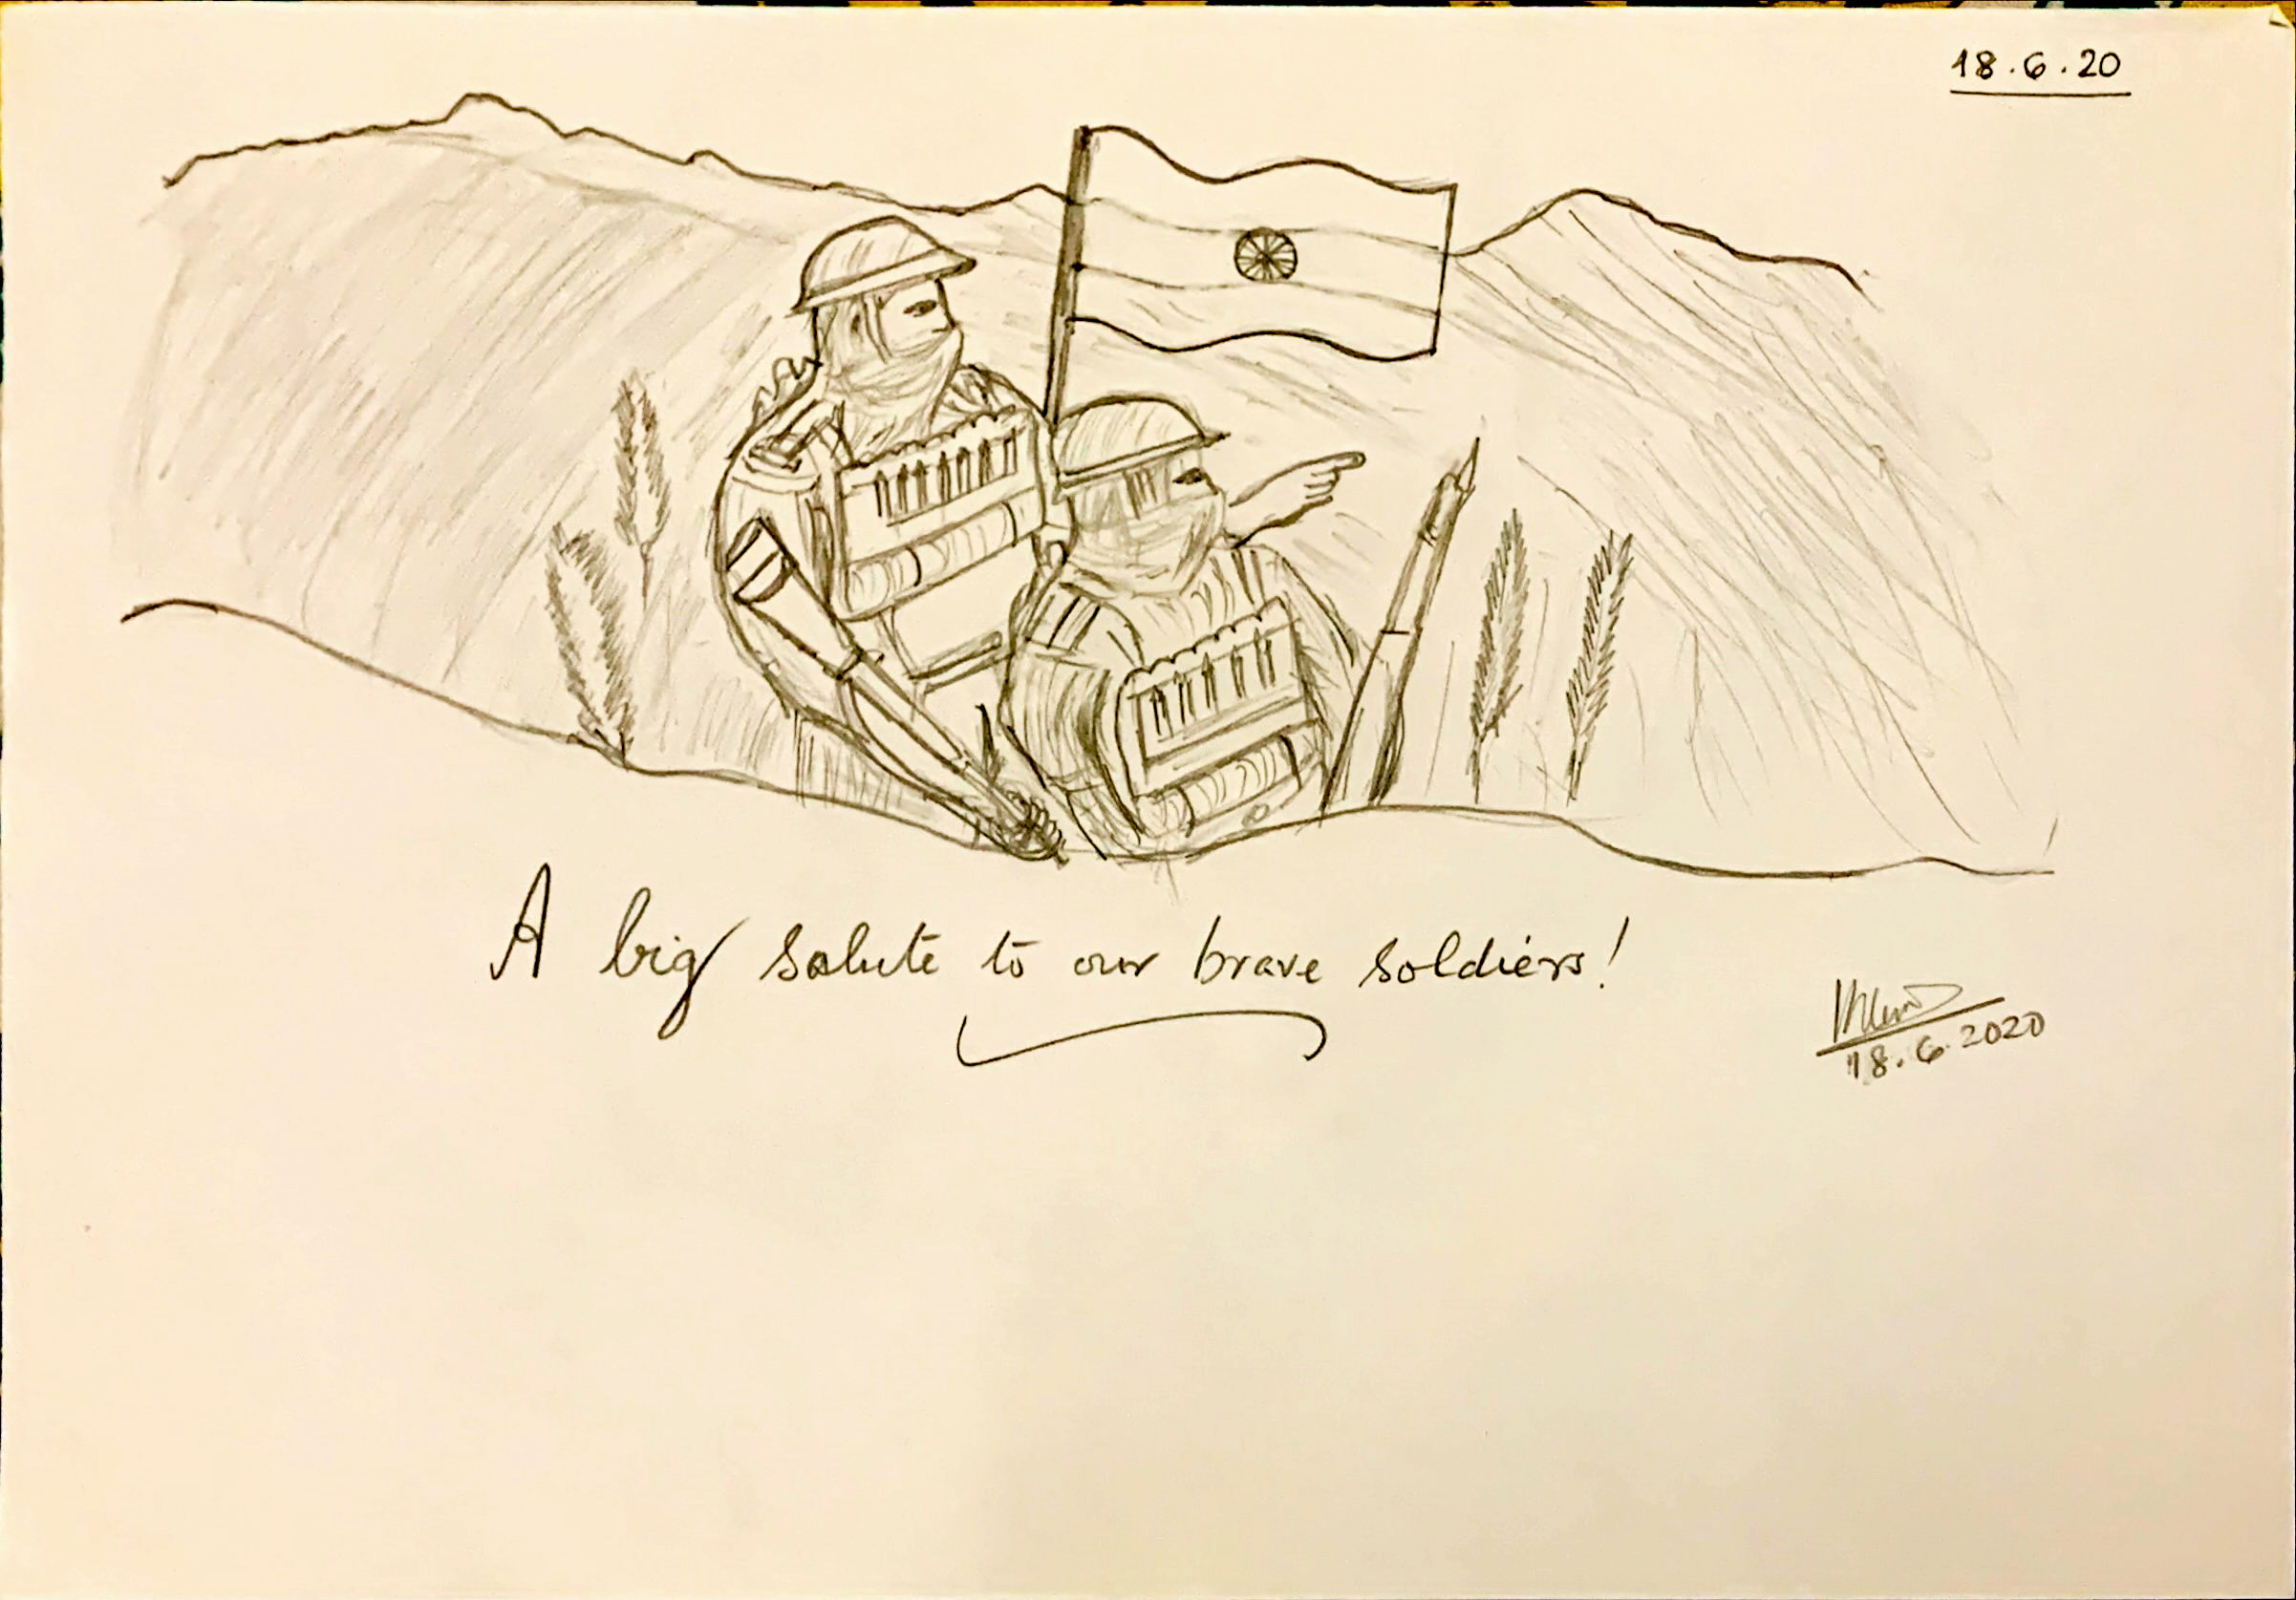 18.6.20
A big salute to our brave soldiers!
18.6.2020